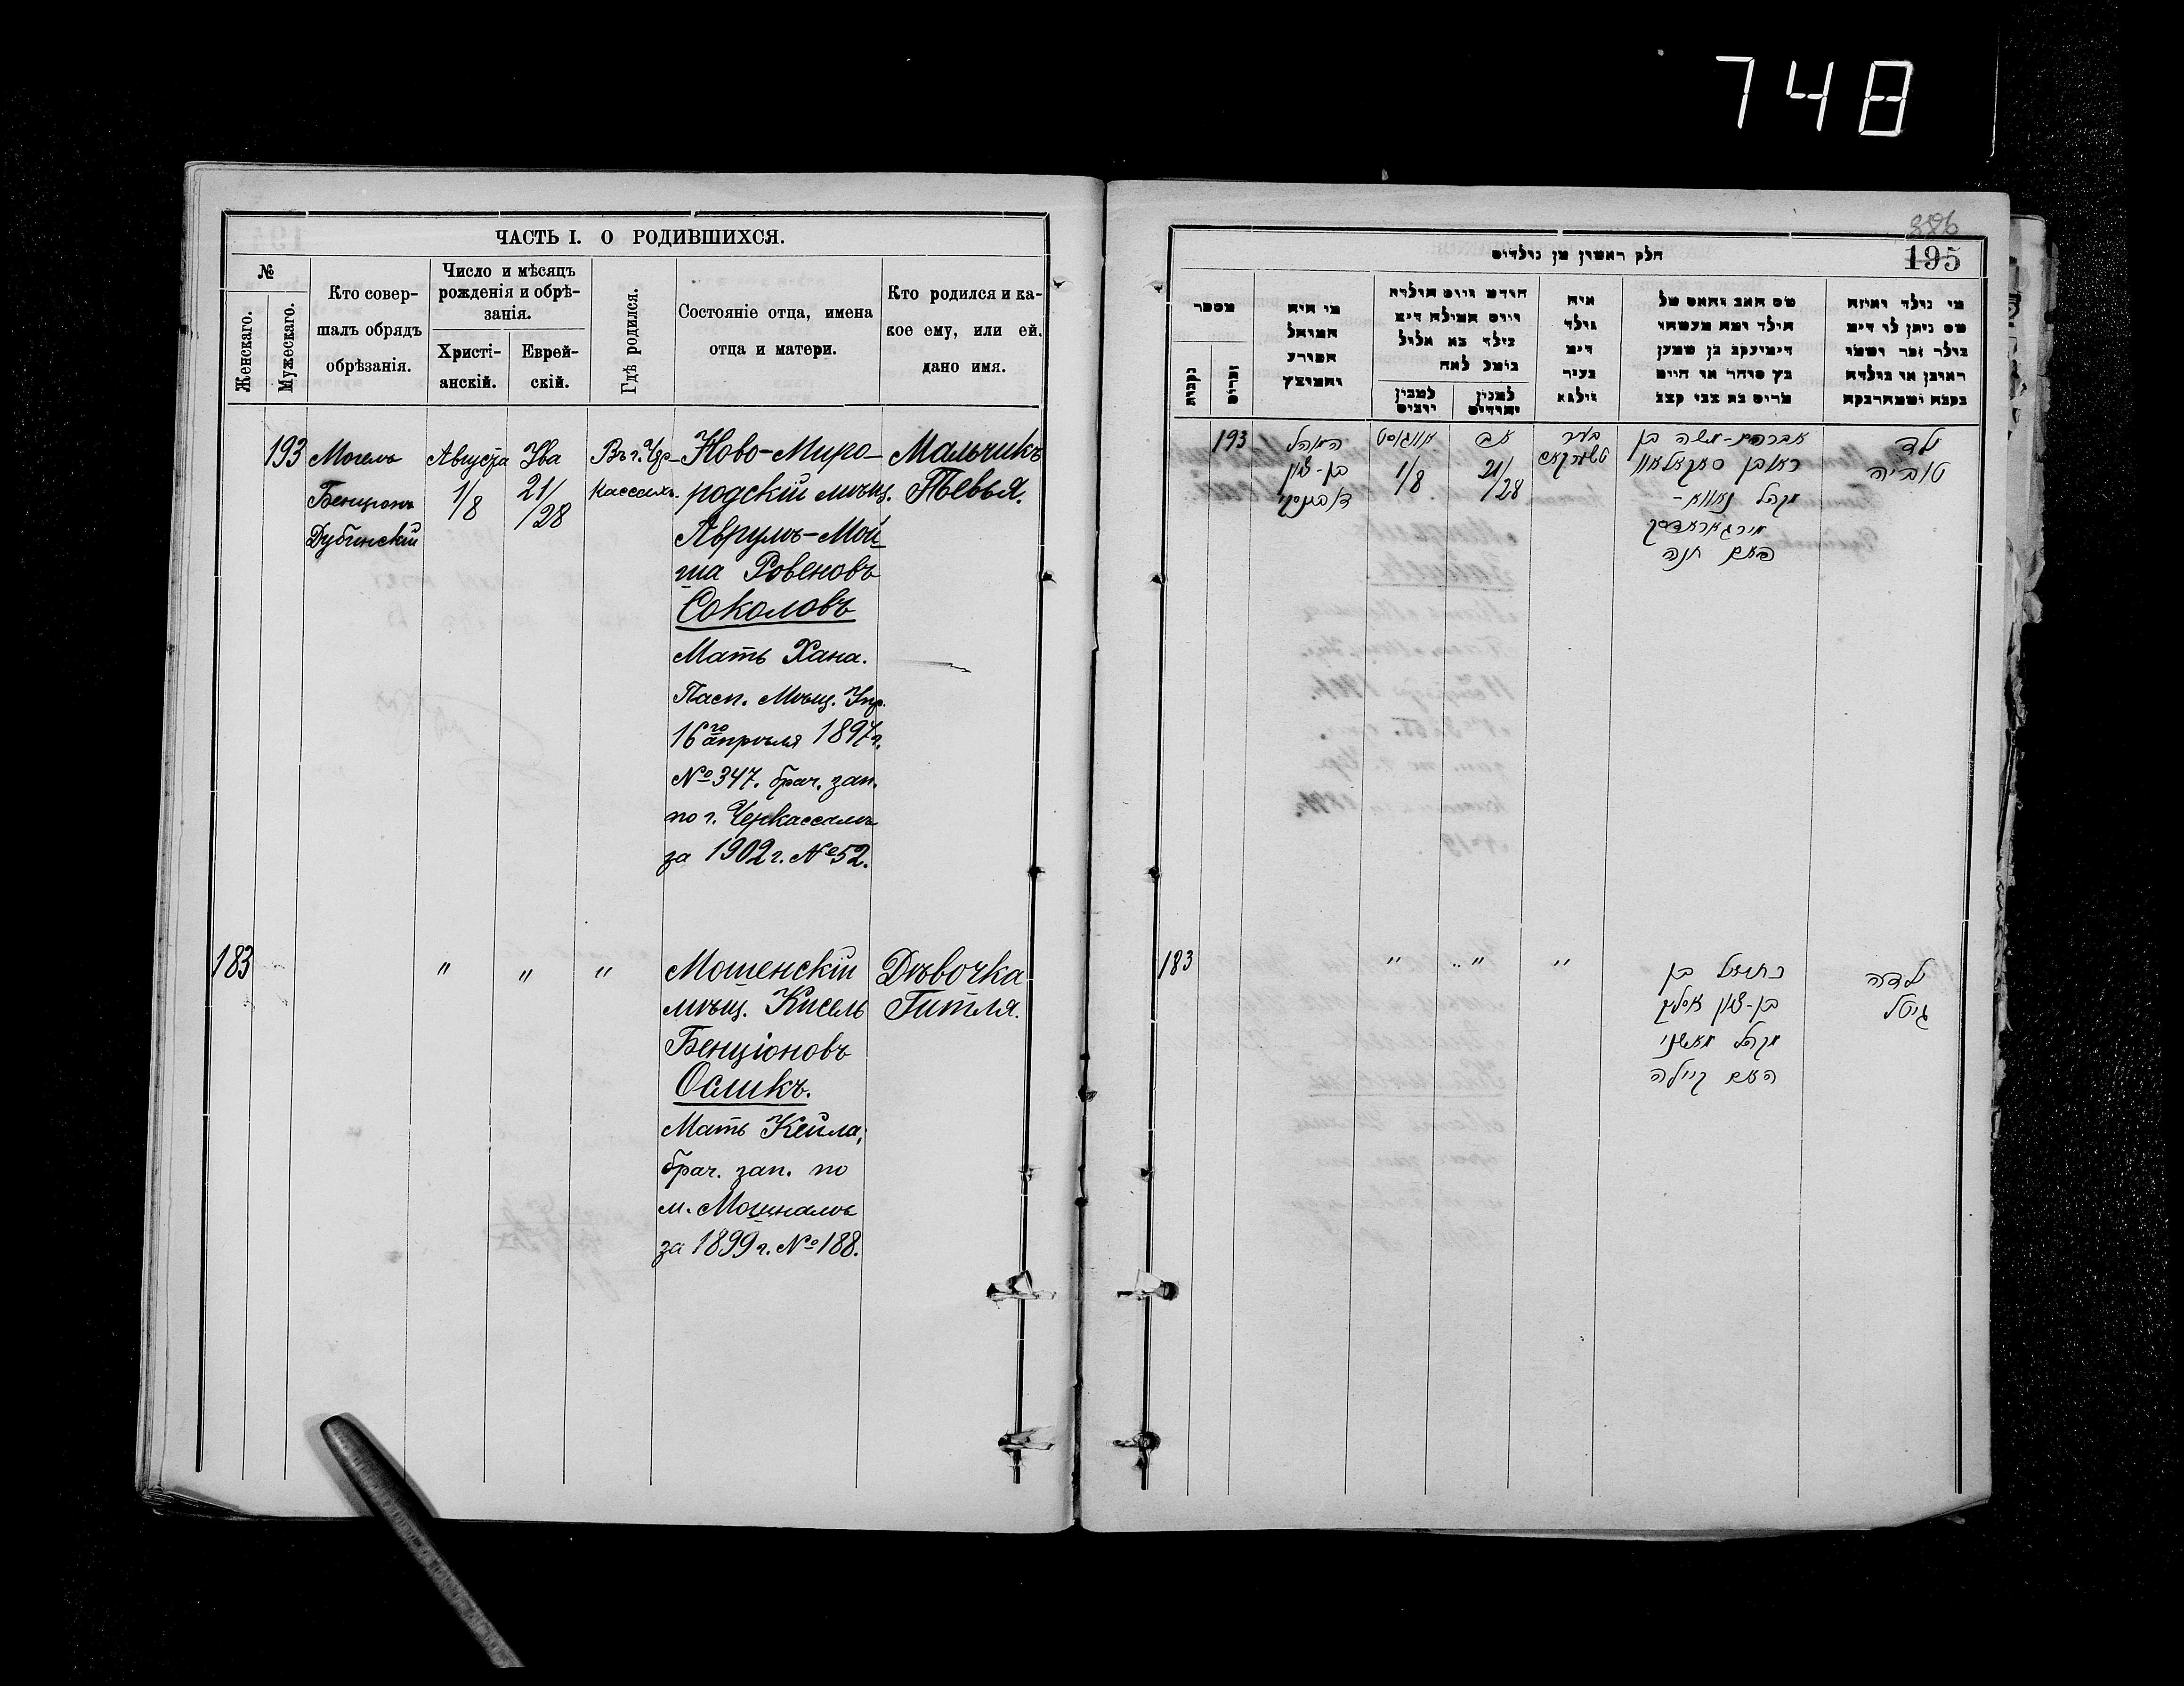 748
ЧАСТЬ I. О РОДИВШИХСЯ.
№
Женскаго.
Мужескаго.
Кто совер-
шалъ обрядъ
обрѣзанія.
Число и мѣсяцъ
рожденія и обрѣ-
занія.
Христі-
анскій.
Еврей-
скій.
Гдѣ родился.
Состояніе отца, имена
отца и матери.
Кто родился и ка-
кое ему, или ей.
дано имя.
193
Могель
Бенціонъ
Дубинскій
Августа
1/8
Ува
21/28
Въ г. Чер-
кассахъ.
Ново-Миро-
родскій мѣщ.
Аврумъ-Мой
ша Ровеновъ
Соколовъ
Мать Хана.
Пасп. Мѣщ. Упр.
16го апрѣля 1897г.
№ 347. брач. зап.
по г. Черкассамъ
за 1902 г. № 52.
Мальчикъ
Тевья.
183
"
"
"
Мошенскій
мѣщ. Кисель
Бенціоновъ
Осликъ.
Мать Кейла;
брач. зап. по
м. Мошнамъ
за 1899 г. № 188.
Дѣвочка
Гитля.
886
195
חלק ראשון מן נולדים
מספר
נקבות
זכרים
מי היה
המוהל
חודש ויום הולדת
ויום המילה דימ
למנין
יהודים
איה
נולד
דימ
בעיר
ווילנא
שם האב והאם של
הילד ומה מעשהו
דימיעקב בן שמען
כץ סוחר או חיים
מרים בת צבי קצב
מי נולד ואיזה
שם ניתן לו דימ
ראובן או נולדה
193
המוהל
בן-ציון
דובינסקי
אווגוסט
1/8
אב
21/28
בעיר
טשערקאס
אברהם-משה בן
ראובן סאקאלאוו
מקהל נאווא-
מירגאראדסק
האם חנה
ילד
טוביה
183
"
"
"
בן-ציון אסליק
מקהל מאשני
האם קיילה
ילדה
גיטל